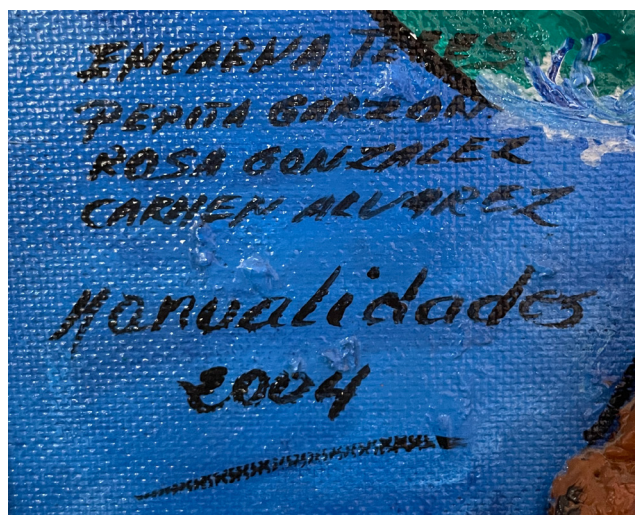 ENCARNA
PEPITA GARZON
ROSA GONZALEZ
CARMEN ALVAREZ
Manualidades
2004